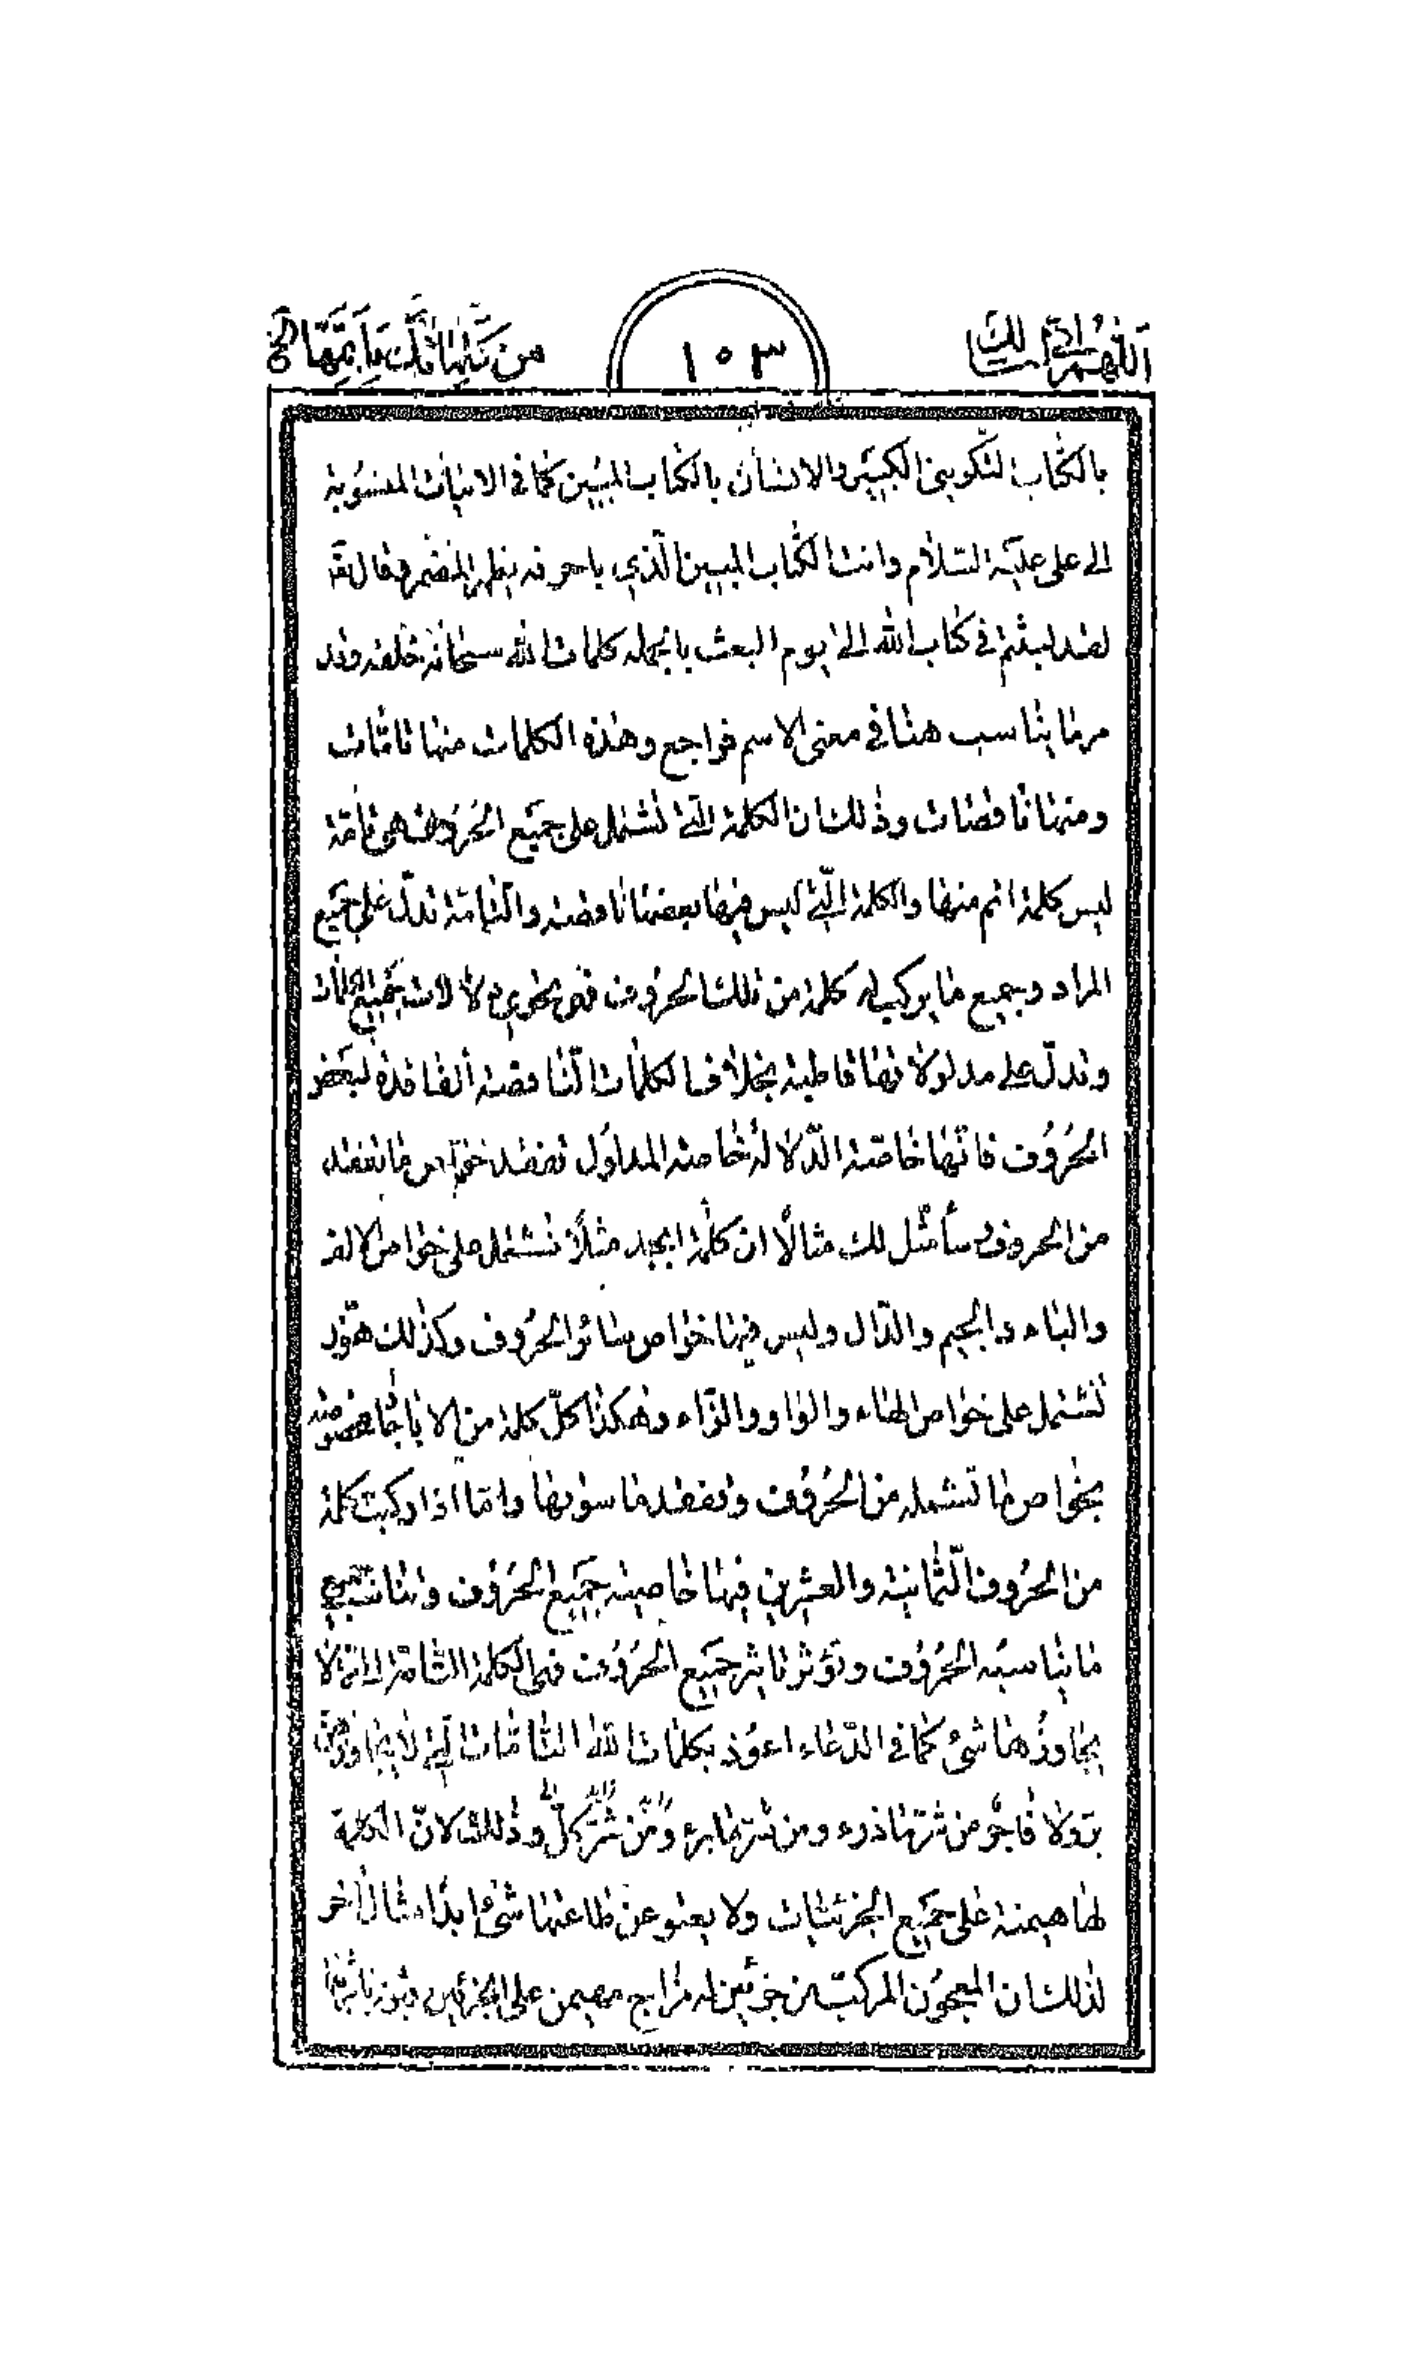 اللهم اني اسالك
١٠٣
من كلماتك باتمها الخ
بالكتاب التكويني الكبير والانسان بالكتاب المبين كما في الابيات المنسوبة
الى علي عليه السلام وانت الكتاب المبين الذي باحرفه يظهر المضمر وقال تعه
لقد لبثتم في كتاب الله الى يوم البعث بالجمله كلمات الله سبحانه خلقه وقد
مر ما يناسب هنا في معنى الاسم فراجع وهذه الكلمات منها تامات
ومنها ناقصات وذلك ان الكلمة التي تشتمل على جميع الحروف هي تامة
ليس كلمة اتم منها والكلمة التي ليس فيها بعضها ناقصة والتامة تدل على جميع
المراد وجميع ما يركب له كلمة من تلك الحروف فهي تحوي دلالات جميع الكلمات
وتدل على مدلولاتها قاطبة بخلاف الكلمات الناقصة الفاقدة لبعض
الحروف فانها خاصة الدلالة خاصة المدلول تفقد خواص ما تفقده
من الحروف سأمثل لك مثالًا ان كلمة ابجد مثلًا تشتمل على خواص الالف
والباء والجيم والدال وليس فيها خواص سائر الحروف وكذلك هوز
تشتمل على خواص الهاء والواو والزاء وهكذا كل كلمة من الاباجاد مخصوصة
بخواص ما تشمله من الحروف وتفقد ما سواها واما اذا ركبت كلمة
من الحروف الثمانية والعشرين فيها خاصية جميع الحروف وتناسب جميع
ما يناسبه الحروف وتؤثر تاثير جميع الحروف فهي الكلمة التامة التي لا
يجاوزها شئ كما في الدعاء اعوذ بكلمات الله التامات التي لا يجاوزهن
بر ولا فاجر من شر ما ذرء ومن شر ما برء ومن شر كل وذلك لان الكلمة
لها هيمنة على جميع الجزئيات ولا يعتو عن طاعتها شئ ابدا مثال آخر
لذلك ان المعجون المركب من جزئين له مزاج مهيمن على الجزئين